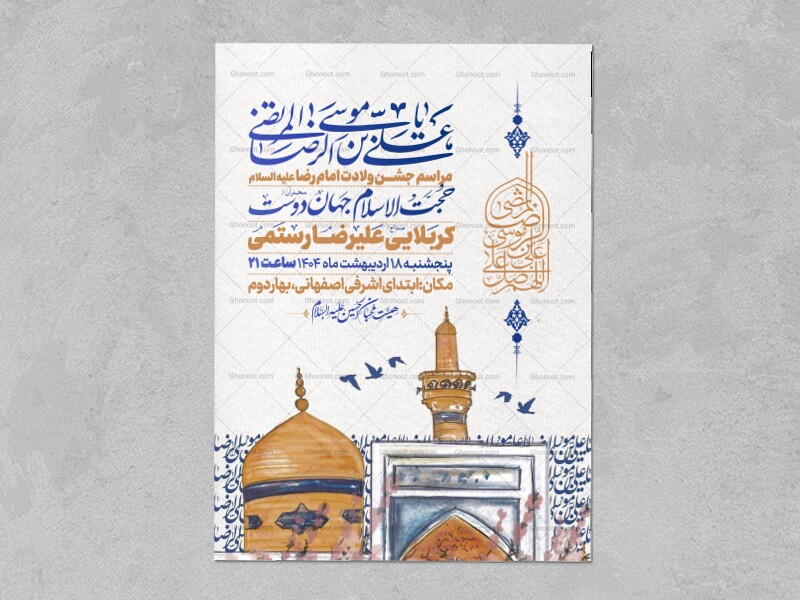 یا علی بن موسی الرضا المرتضی
مراسم جشن ولادت امام رضا علیه السلام
سخنران:
حجت الاسلام جهان دوست
مداح:
کربلایی علیرضا رستمی
پنجشنبه ۱۸ اردیبهشت ماه ۱۴۰۴ ساعت ۲۱
مکان: ابتدای اشرفی اصفهانی، بهار دوم
هیئت محبان الحسین علیه السلام
اللهم صل علی علی بن موسی الرضا المرتضی
Ghonoot.com